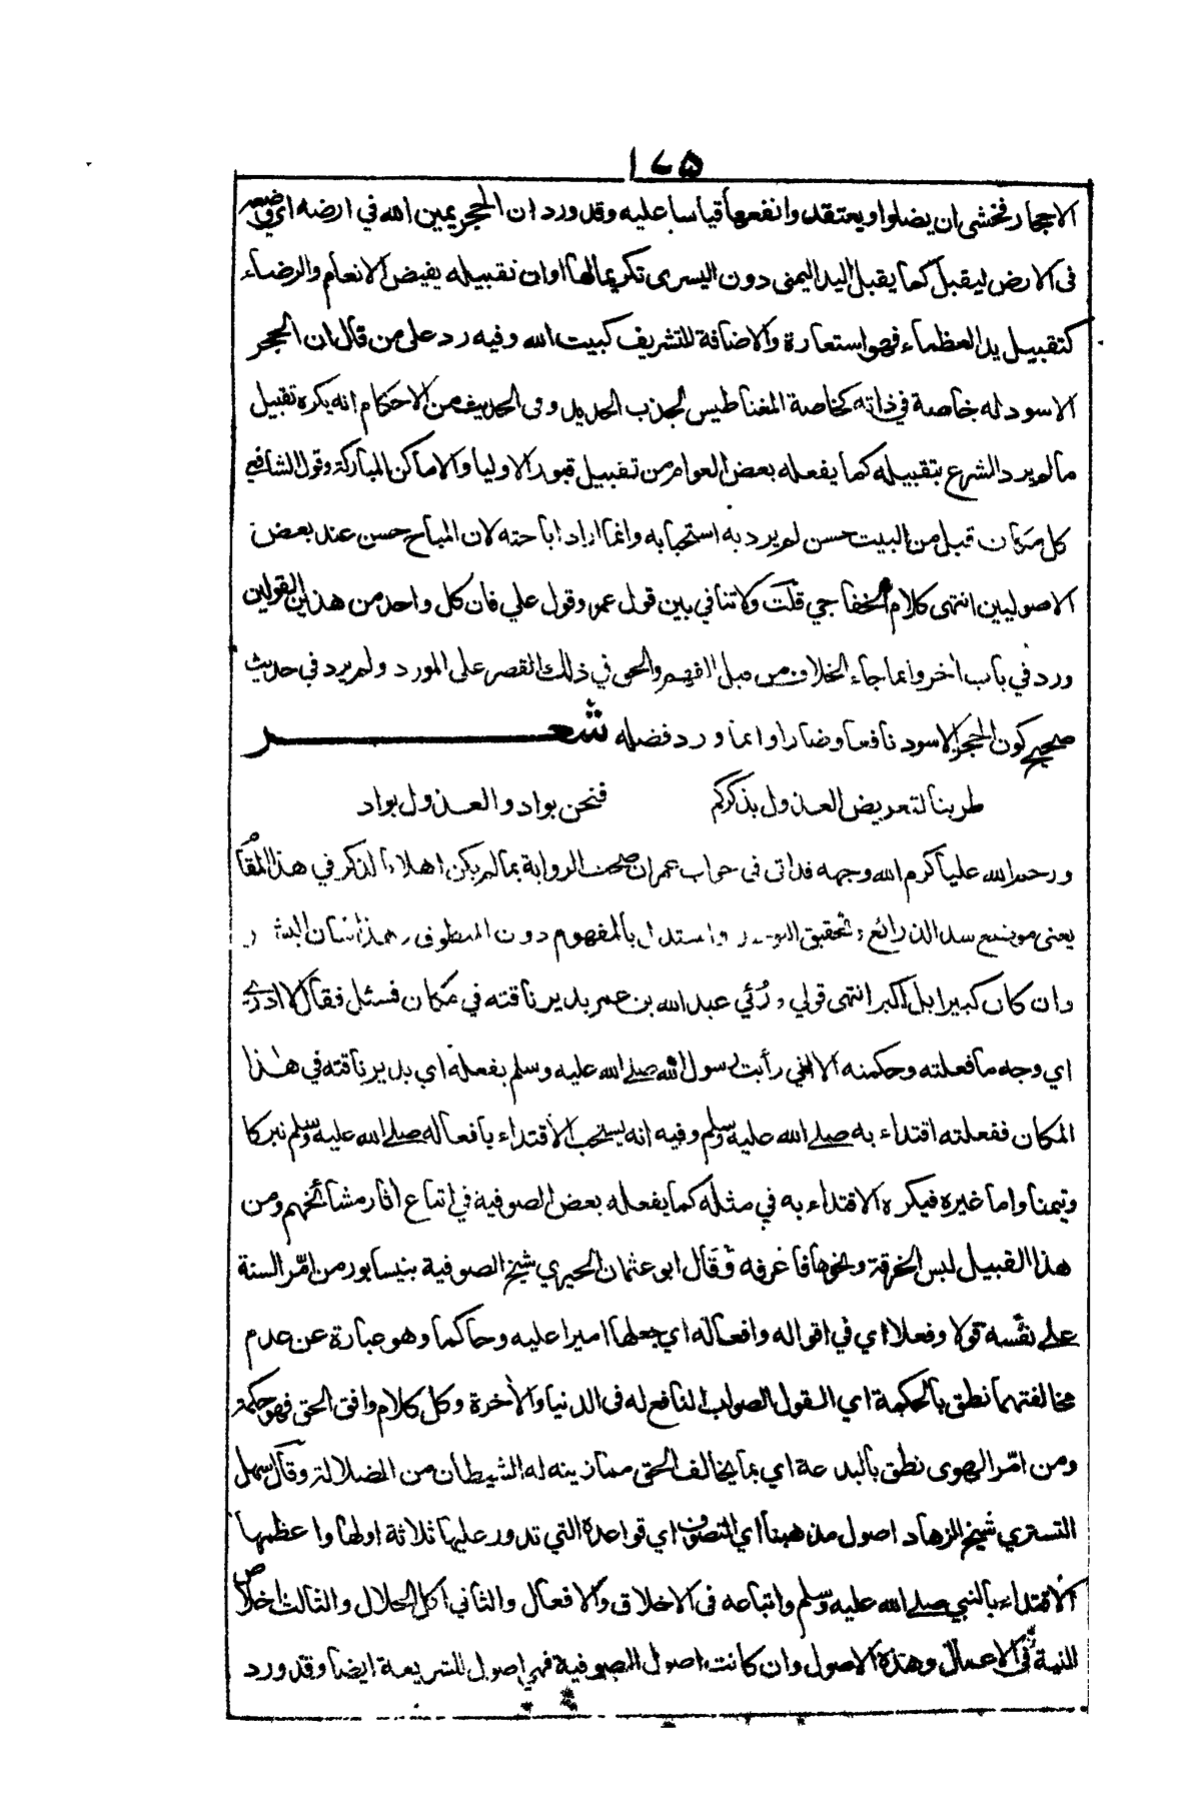 ١٢٥
الاحجار فخشي ان يضلوا ويعتقدوا نفعها قياسا عليه وقد ورد ان الحجر يمين الله في ارضه اي وضعه
فى الارض ليقبل كما يقبل اليد اليمنى دون اليسرى تكريما لها او ان تقبيله يفيض الانعام والرضاء
كتقبيل يد العظماء فهو استعارة والاضافة للتشريف كبيت الله وفيه رد على من قال ان الحجر
الاسود له خاصة في ذاته كخاصة المغناطيس لجذب الحديد وفى الحديث من الاحكام انه يكره تقبيل
ما لم يرد الشرع بتقبيله كما يفعله بعض العوام من تقبيل قبور الاوليا والاماكن المباركة وقول الشافعي
كل مكان قبل من البيت حسن لم يرد به استحبابه وانما اراد اباحته لان المباح حسن عند بعض
الاصوليين انتهى كلام الخفاجي قلت ولا تنافي بين قول عمر وقول علي فان كل واحد من هذين القولين
ورد في باب اخر وانما جاء الخلاف من قبل الفهم والحق في ذلك القصر على المورد ولم يرد في حديث
صحيح كون الحجر الاسود نافعا وضارا وانما ورد فضله شعر
طربنا لتعريض العذول بذكركم فنحن بواد والعذول بواد
ورحم الله عليا كرم الله وجهه فد اتى فى جواب عمر ان صحت الرواية بما لم يكن اهلا لذكر في هذا المقام
يعنى موضع سد الذرائع وتحقيق واستدل بالمفهوم دون المنطوق وهذا شان البشر
وان كان كبيرا بل اكبر انتهى قولي ورُئي عبد الله بن عمر يدير ناقته في مكان فسئل فقال لا ادري
اي وجه ما فعلته وحكمته الا اني رأيت رسول الله صلى الله عليه وسلم يفعله اي يدير ناقته في هذا
المكان ففعلته اقتداء به صلى الله عليه وسلم وفيه انه يستحب الاقتداء بافعاله صلى الله عليه وسلم تبركا
وتيمنا واما غيره فيكره الاقتداء به في مثله كما يفعله بعض الصوفية في اتباع اثار مشائخهم ومن
هذا القبيل لبس الخرقة ونحوها فاعرفه وقال ابو عثمان الحيري شيخ الصوفية بنيسابور من امّر السنة
على نفسه قولا وفعلا اي في اقواله وافعاله اي جعلها اميرا عليه وحاكما وهو عبارة عن عدم
مخالفتهما نطق بالحكمة اي القول الصواب النافع له فى الدنيا والأخرة وكل كلام وافق الحق فهو حكمة
ومن امّر الهوى نطق بالبدعة اي بما يخالف الحق مما زينه له الشيطان من الضلالة وقال سهل
التستري شيخ الزهاد اصول مذهبنا اي التصوف اي قواعده التي تدور عليها ثلاثة اولها واعظمها
الأقتداء بالنبي صلى الله عليه وسلم واتباعه فى الاخلاق والافعال والثاني اكل الحلال والثالث اخلاص
النية فى الاعمال وهذه الاصول وان كانت اصول الصوفية فهي اصول للشريعة ايضا وقد ورد